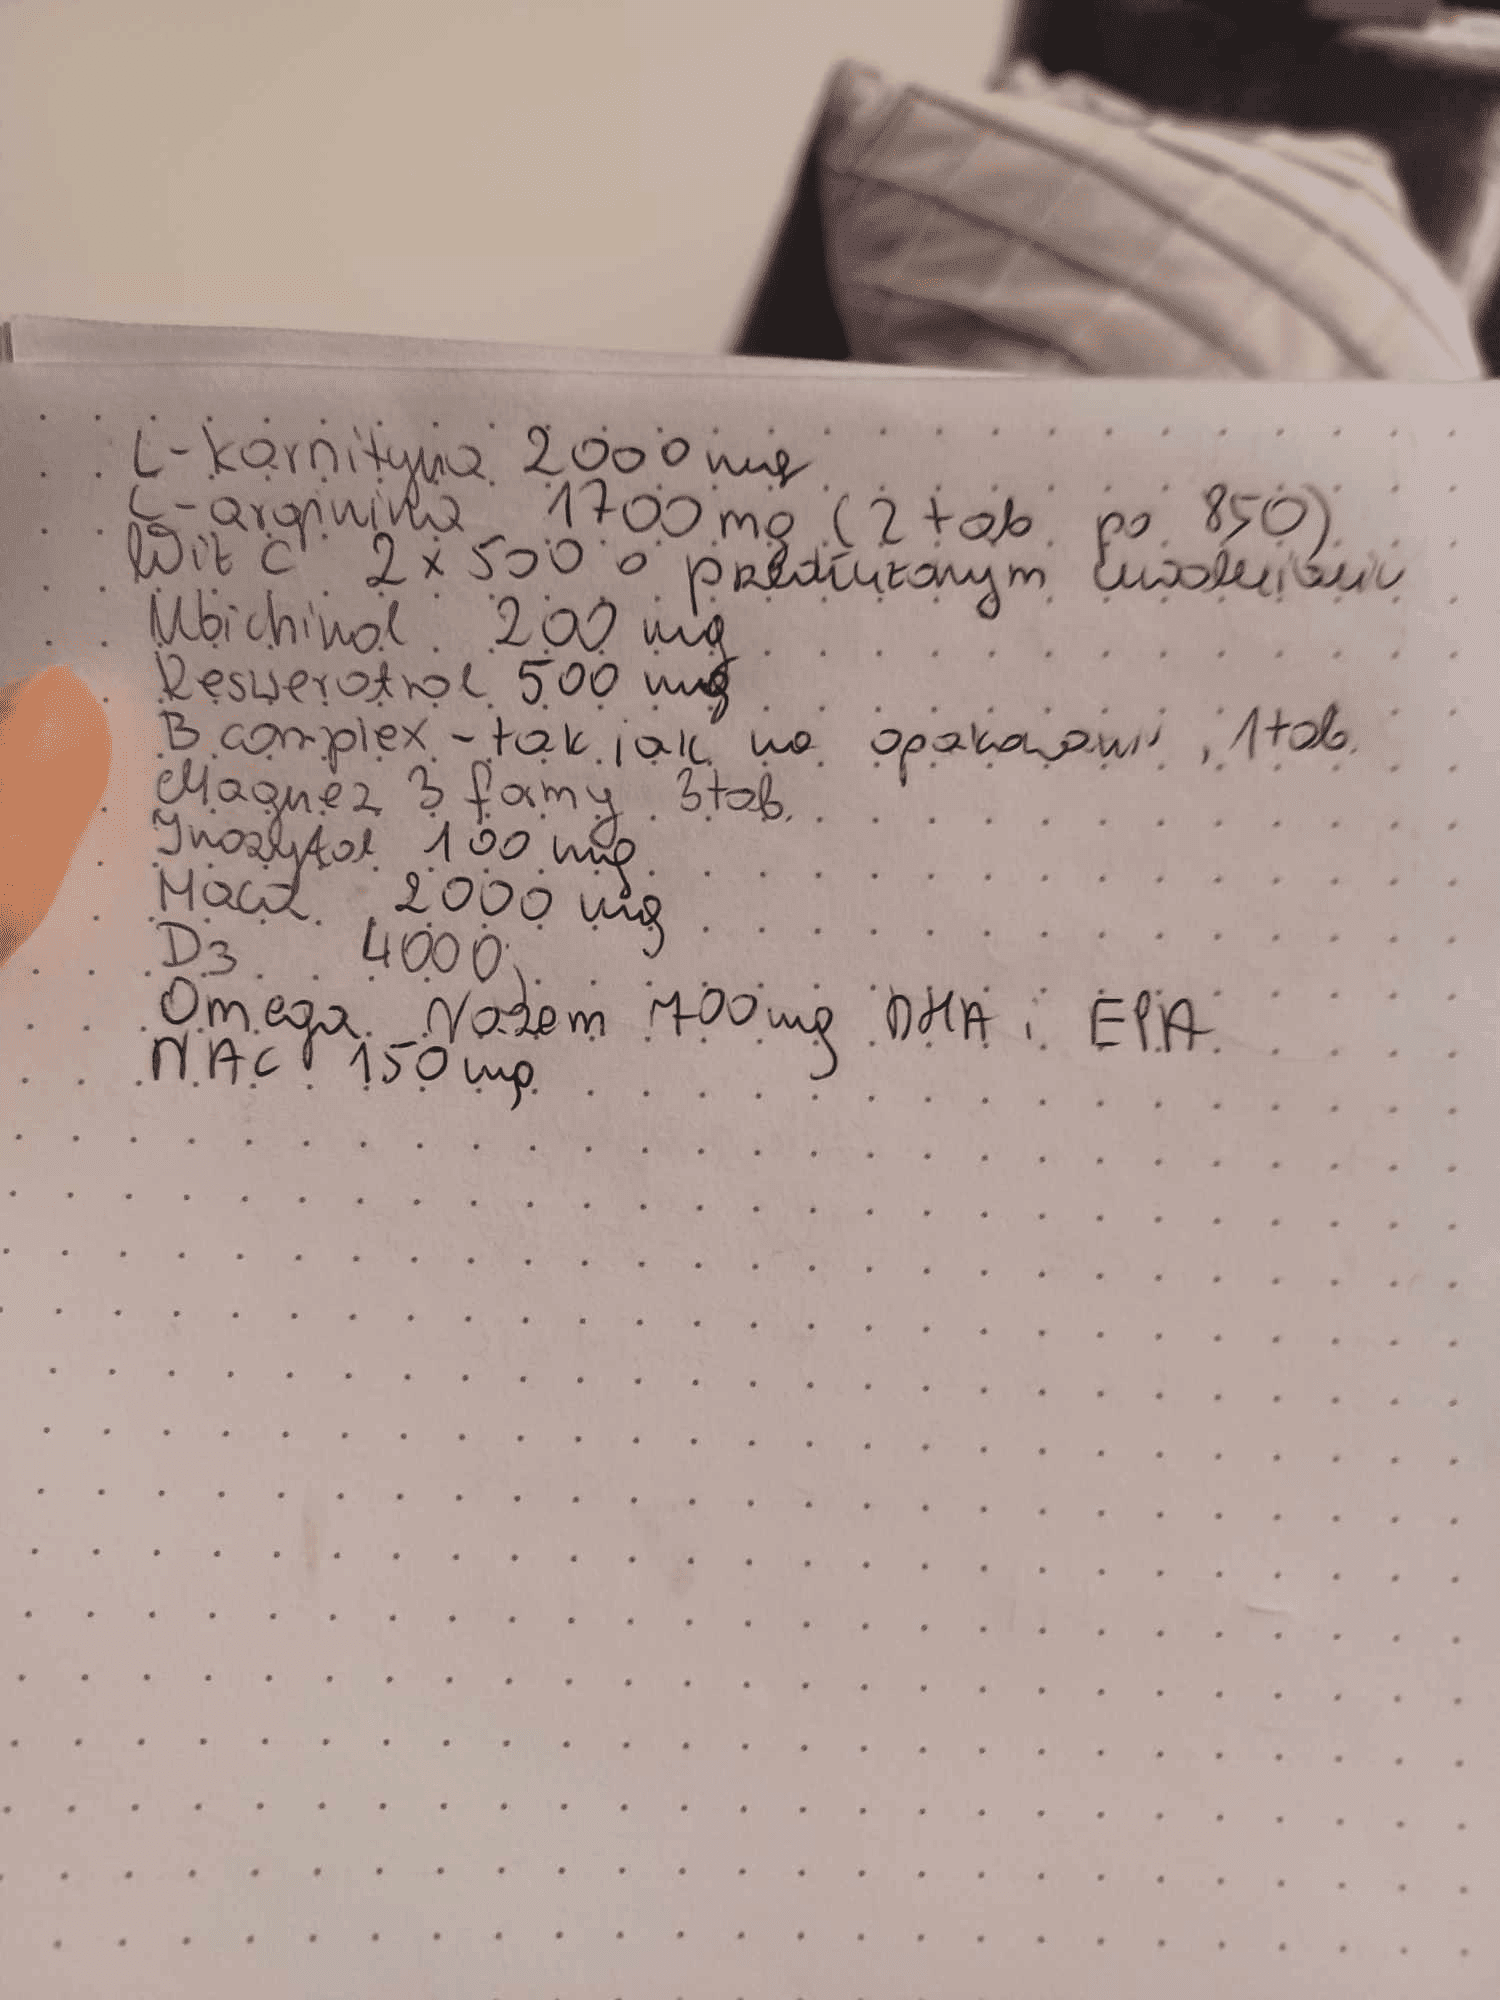 L-karnityna 2000mg
L-arginina 1700mg (2 tab po 850)
Wit C 2x500 o przedłużonym uwolnieniu
Ubichinol 200 mg
Resweratrol 500 mg
B complex - tak jak na opakowaniu, 1 tab.
Magnez 3 formy 3 tab.
Inozytol 100 mg
Maca 2000 mg
D3 4000
Omega Nazem 700mg DHA i EPA
NAC 150mg